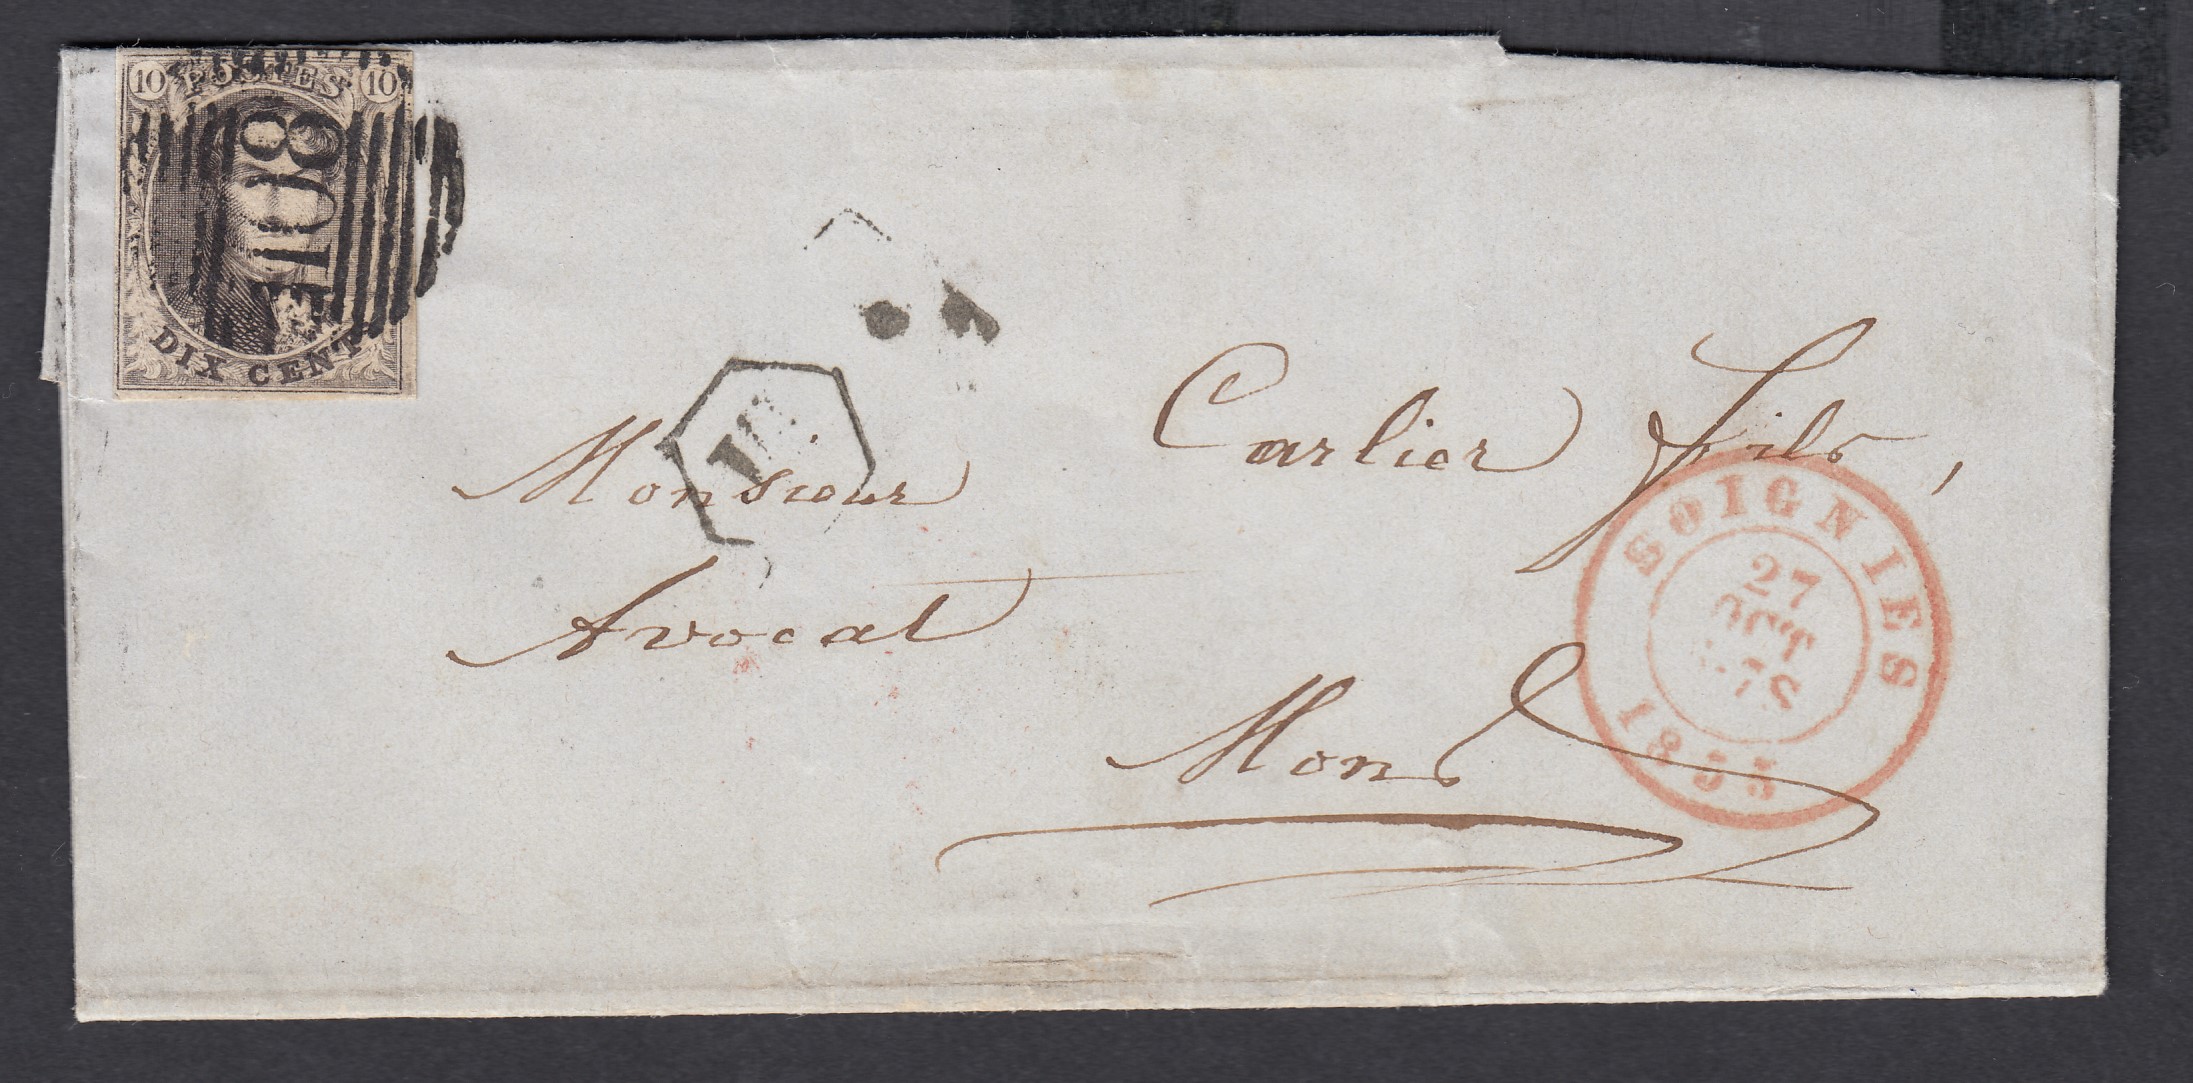 10 POSTES 10
108
DIX CENT
Monsieur Carlier fils,
Avocat
Mons
SOIGNIES
27
OCT
7S
1853